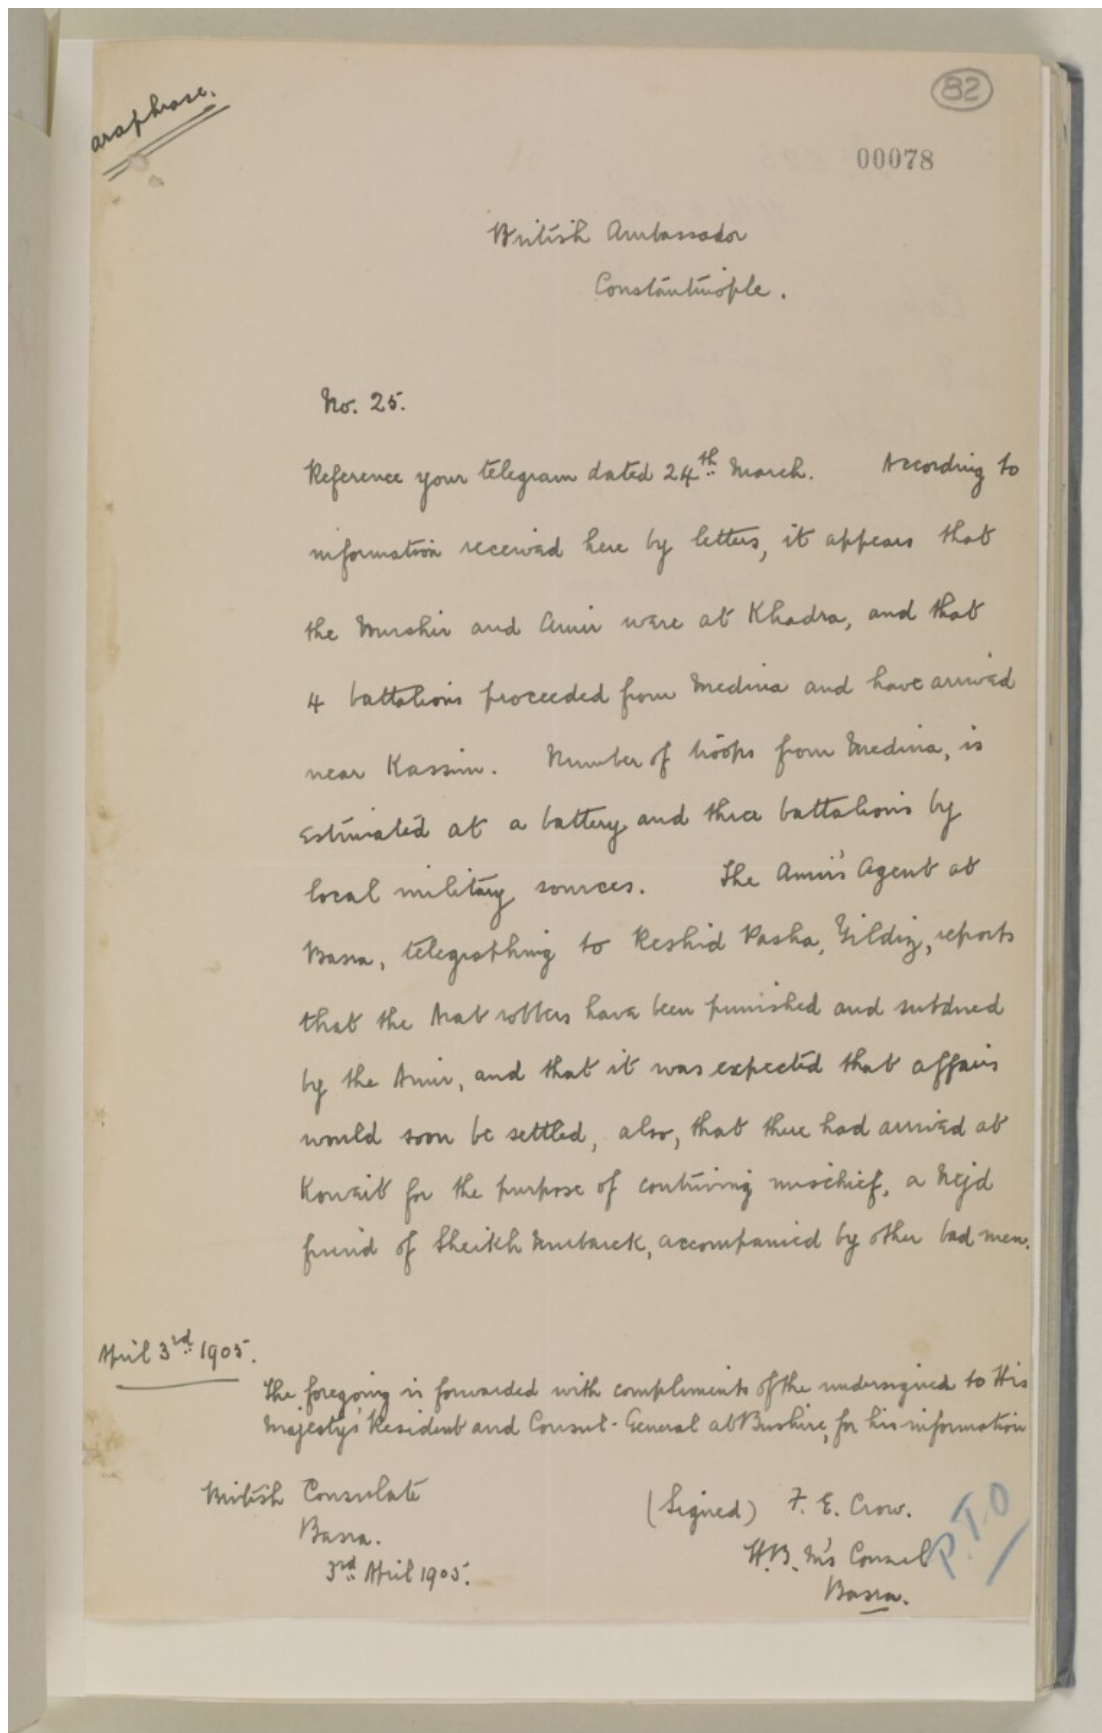 araphrase.
82
00078
British Ambassador
Constantinople.
No. 25.
Reference your telegram dated 24th March. According to
information received here by letters, it appears that
the Murshir and Amir were at Khadra, and that
4 battalions proceeded from Medina and have arrived
near Kassim. Number of troops from Medina, is
estimated at a battery and three battalions by
local military sources. The Amir's Agent at
Basra, telegraphing to Reshid Pasha, Yildiz, reports
that the Arab robbers have been punished and subdued
by the Amir, and that it was expected that affairs
would soon be settled, also, that there had arrived at
Koweit for the purpose of contriving mischief, a Nejd
friend of Sheikh Mubarek, accompanied by other bad men.
April 3rd 1905.
The foregoing is forwarded with compliments of the undersigned to His
Majesty's Resident and Consul-General at Bushire, for his information
British Consulate
Basra.
3rd April 1905.
(Signed) F. E. Crow.
H.B.M's Consul
Basra.
P.T.O